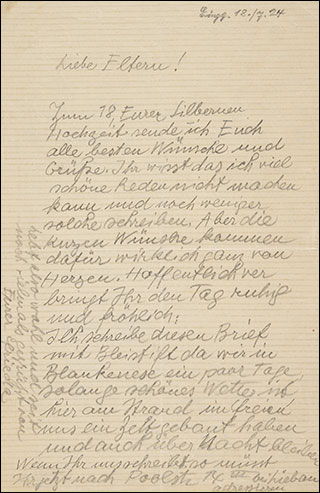 12./7.24
Liebe Eltern!
Zum 18. Eurer Silbernen
Hochzeit sende ich Euch
alle besten Wünsche und
Grüße. Ihr wisst das ich viel
schöne Reden nicht machen
kann und noch weniger
solche schreiben. Aber die
kurzen Wünsche kommen
dafür wirklich ganz von
Herzen. Hoffentlich ver
bringt Ihr den Tag ruhig
und fröhlich.
Ich schreibe diesen Brief
mit Bleistift da wir in
Blankenese ein paar Tage
solange schönes Wetter ist
hier am Strand im freien
uns ein Zelt gebaut haben
und auch über Nacht bleiben
Wenn Ihr uns schreibt so müsst
Ihr jetzt nach Poolstr. 14
adressieren
lebt wohl und seid
von
Eurer